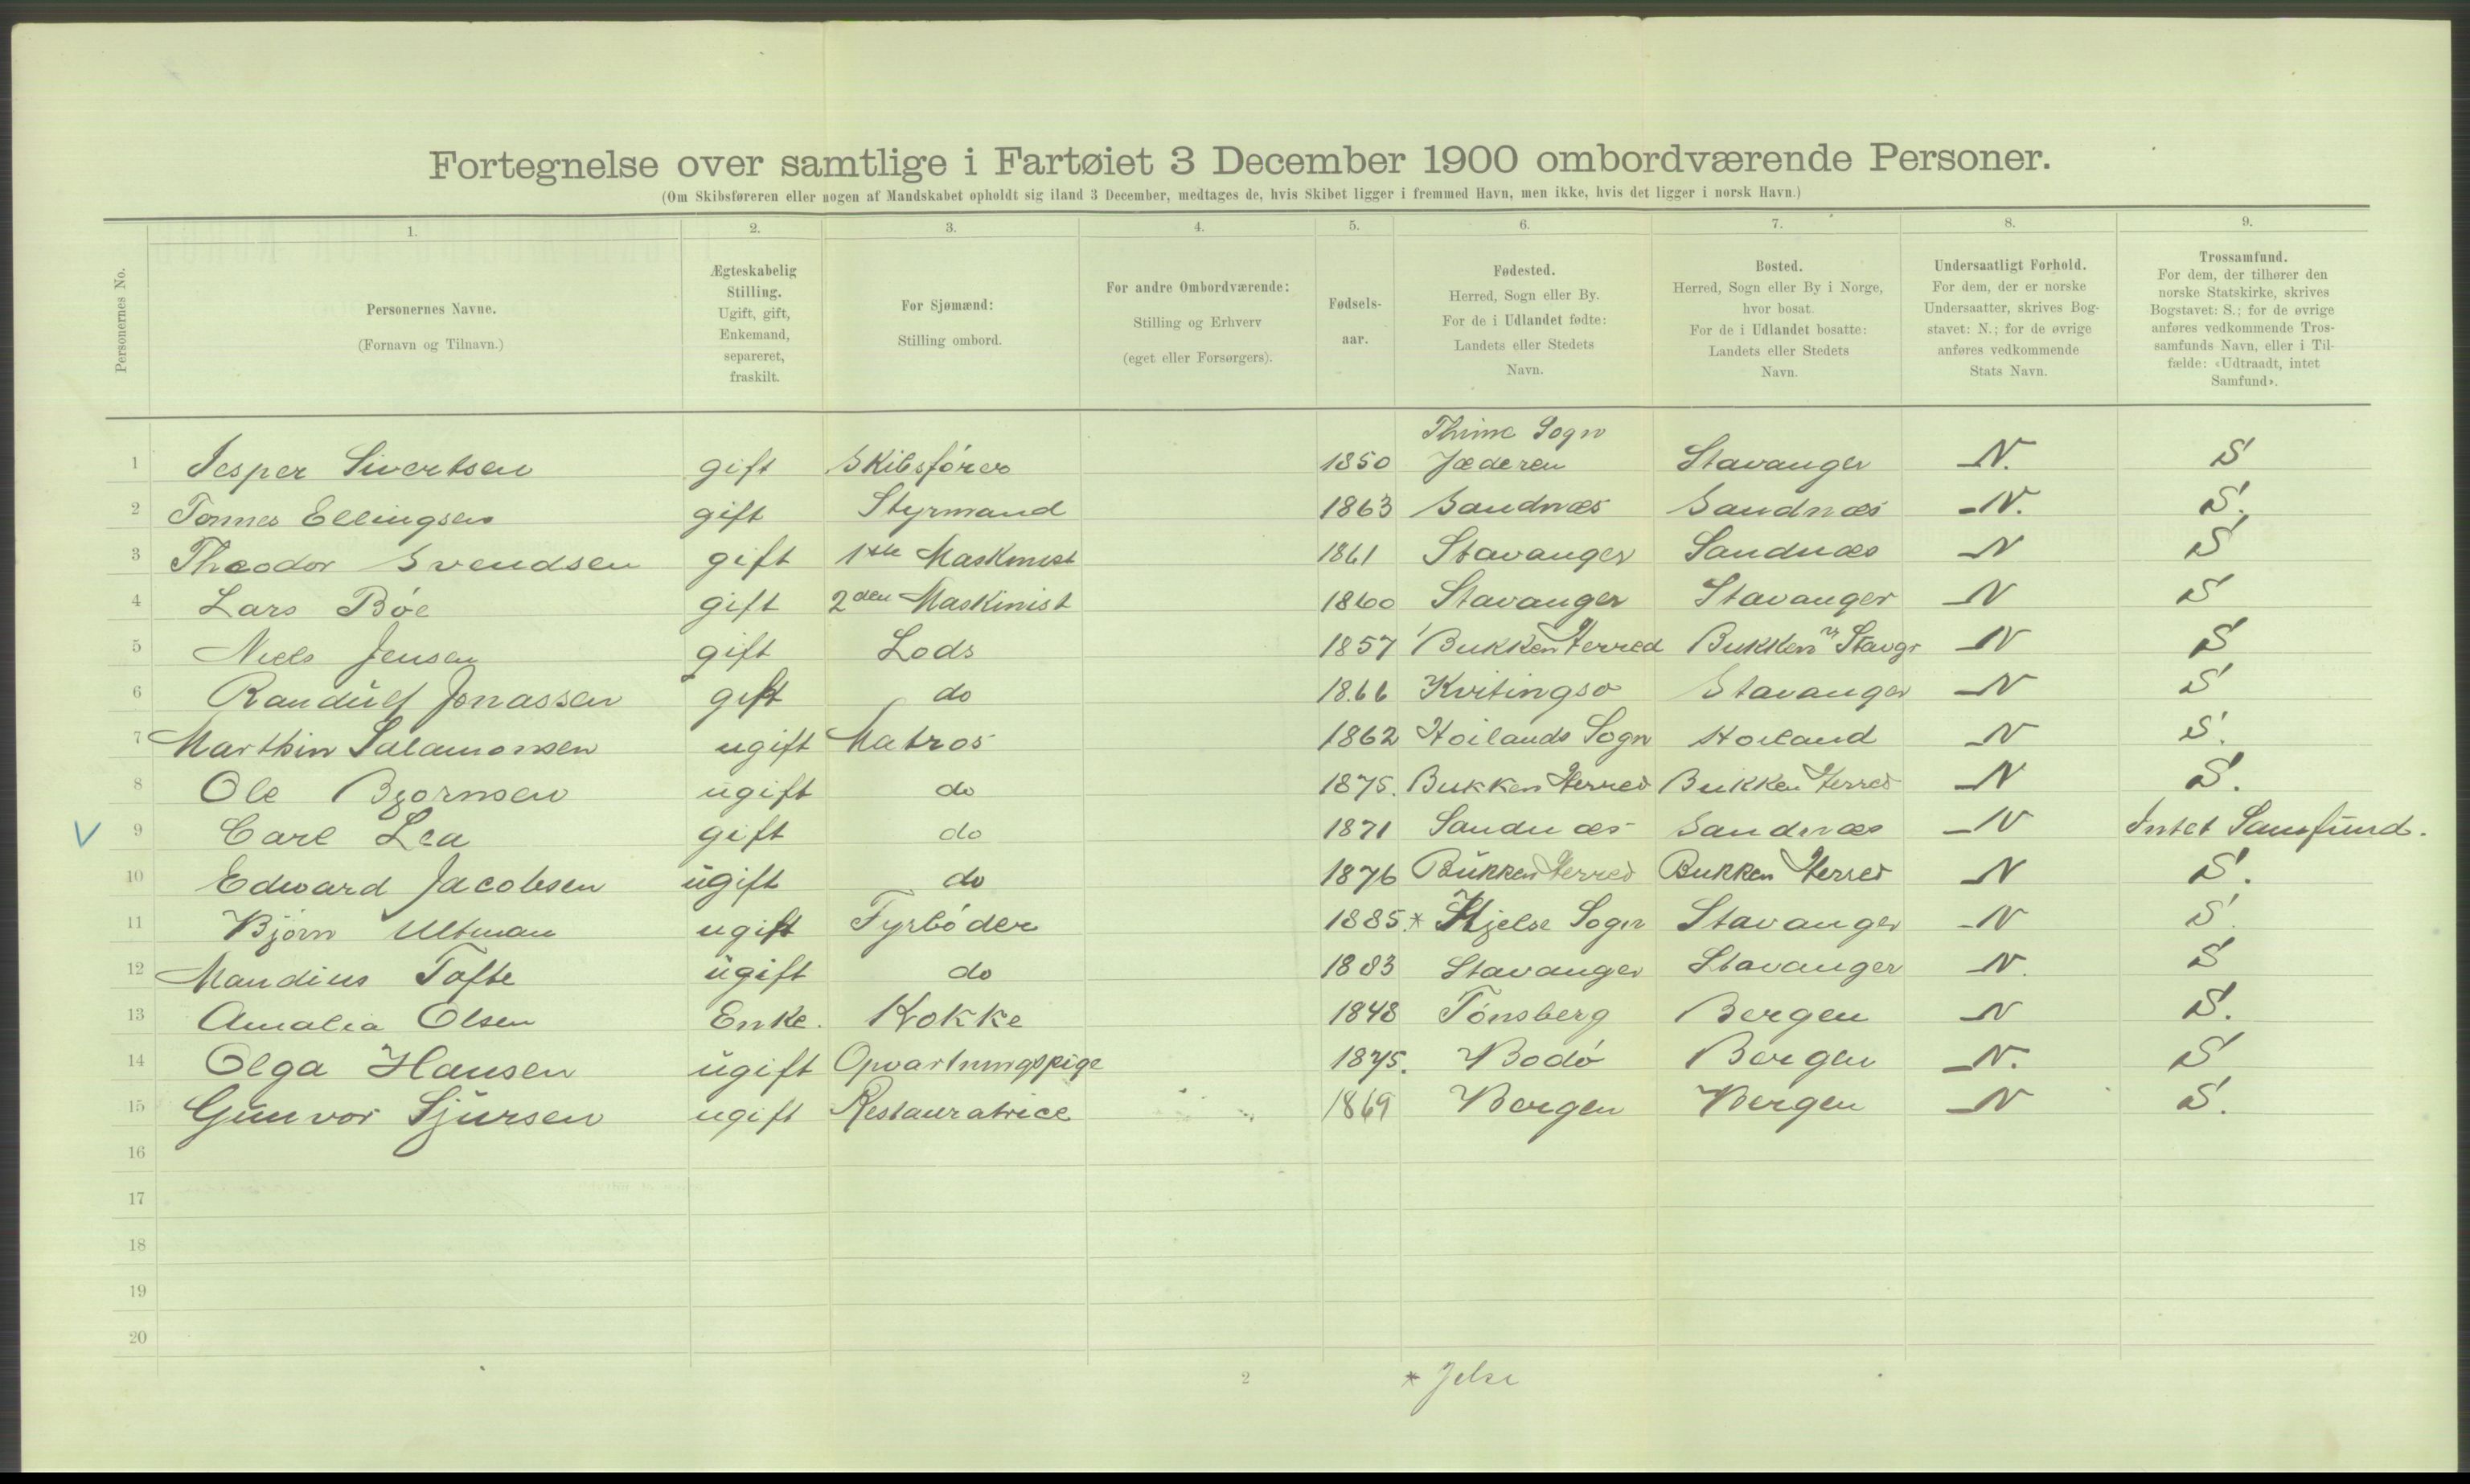 Fortegnelse over samtlige i Fartøiet 3 December 1900 ombordværende Personer.
(Om Skibsføreren eller nogen af Mandskabet opholdt sig iland 3 December, medtages de, hvis Skibet ligger i fremmed Havn, men ikke, hvis det ligger i norsk Havn.)
Personernes No.
1.
Personernes Navne.
(Fornavn og Tilnavn.)
2.
Ægteskabelig
Stilling.
Ugift, gift,
Enkemand,
separeret,
fraskilt.
3.
For Sjømænd:
Stilling ombord.
4.
For andre Ombordværende:
Stilling og Erhverv
(eget eller Forsørgers).
5.
Fødsels-
aar.
6.
Fødested.
Herred, Sogn eller By.
For de i Udlandet fødte:
Landets eller Stedets
Navn.
7.
Bosted.
Herred, Sogn eller By i Norge,
hvor bosat.
For de i Udlandet bosatte:
Landets eller Stedets
Navn.
8.
Undersaatligt Forhold.
For dem, der er norske
Undersaatter, skrives Bog-
stavet: N.; for de øvrige
anføres vedkommende
Stats Navn.
9.
Trossamfund.
For dem, der tilhører den
norske Statskirke, skrives
Bogstavet: S.; for de øvrige
anføres vedkommende Tros-
samfunds Navn, eller i Til-
fælde: «Udtraadt, intet
Samfund».
Thime Sogn
1 Jesper Sivertsen gift Skibsfører 1850 Jæderen Stavanger N. S
2 Tonnes Ellingsen gift Styrmand 1863 Sandnæs Sandnæs N. S.
3 Theodor Svendsen gift 1ste Maskinist 1861 Stavanger Sandnæs N S
4 Lars Bóe gift 2den Maskinist 1860 Stavanger Stavanger N S
5 Niels Jensen gift Lods 1857 Bukken Herred Bukken Stavgr N S
6 Randulf Jonassen gift do 1866 Kvitingso Stavanger N S
7 Marthin Salamonsen ugift Matros 1862 Hoilands Sogn Hoiland N S.
8 Ole Bjornsen ugift do 1875. Bukken Herred Bukken Herred N S.
V 9 Carl Lea gift do 1871 Sandnæs Sandnæs N Intet Samfund.
10 Edward Jacobsen ugift do 1876 Bukken Herred Bukken Herred N S.
11 Bjórn Ultman ugift Fyrbóder 1885.* Hjelse Sogn Stavanger N S.
12 Mandius Tofte ugift do 1883 Stavanger Stavanger N. S
13 Amalia Olsen Enke. Kokke 1848 Tónsberg Bergen N S.
14 Olga Hansen ugift Opvartningspige 1875. Bodó Bergen N. S
15 Gunvor Sjursen ugift Restauratrice 1869 Bergen Bergen N S.
16
17
18
19
20
2
* Jelse